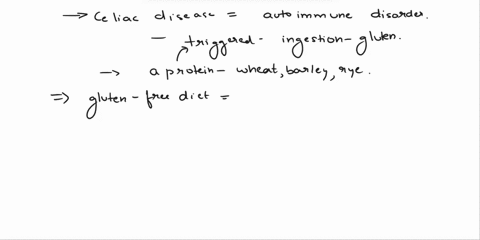 → Celiac disease = autoimmune disorder.
– triggered - ingestion - gluten.
→ a protein - wheat, barley, rye.
⇒ gluten - free diet =